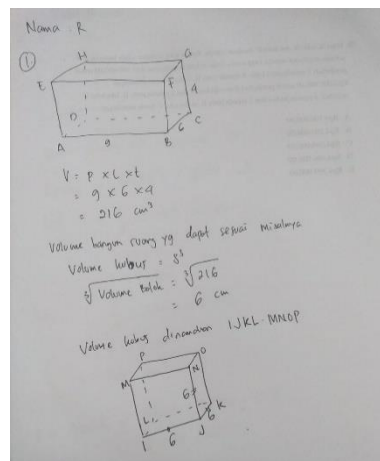 Nama : R
①
H G
E F
4
D C
6
A 9 B
V = P × L × t
= 9 × 6 × 4
= 216 cm³
Volume bangun ruang yg dapat sesuai misalnya
Volume kubus = s³
∛Volume Balok = ∛216
= 6 cm
Volume kubus dinamakan IJKL.MNOP
P O
M N
6
L K
6
I 6 J